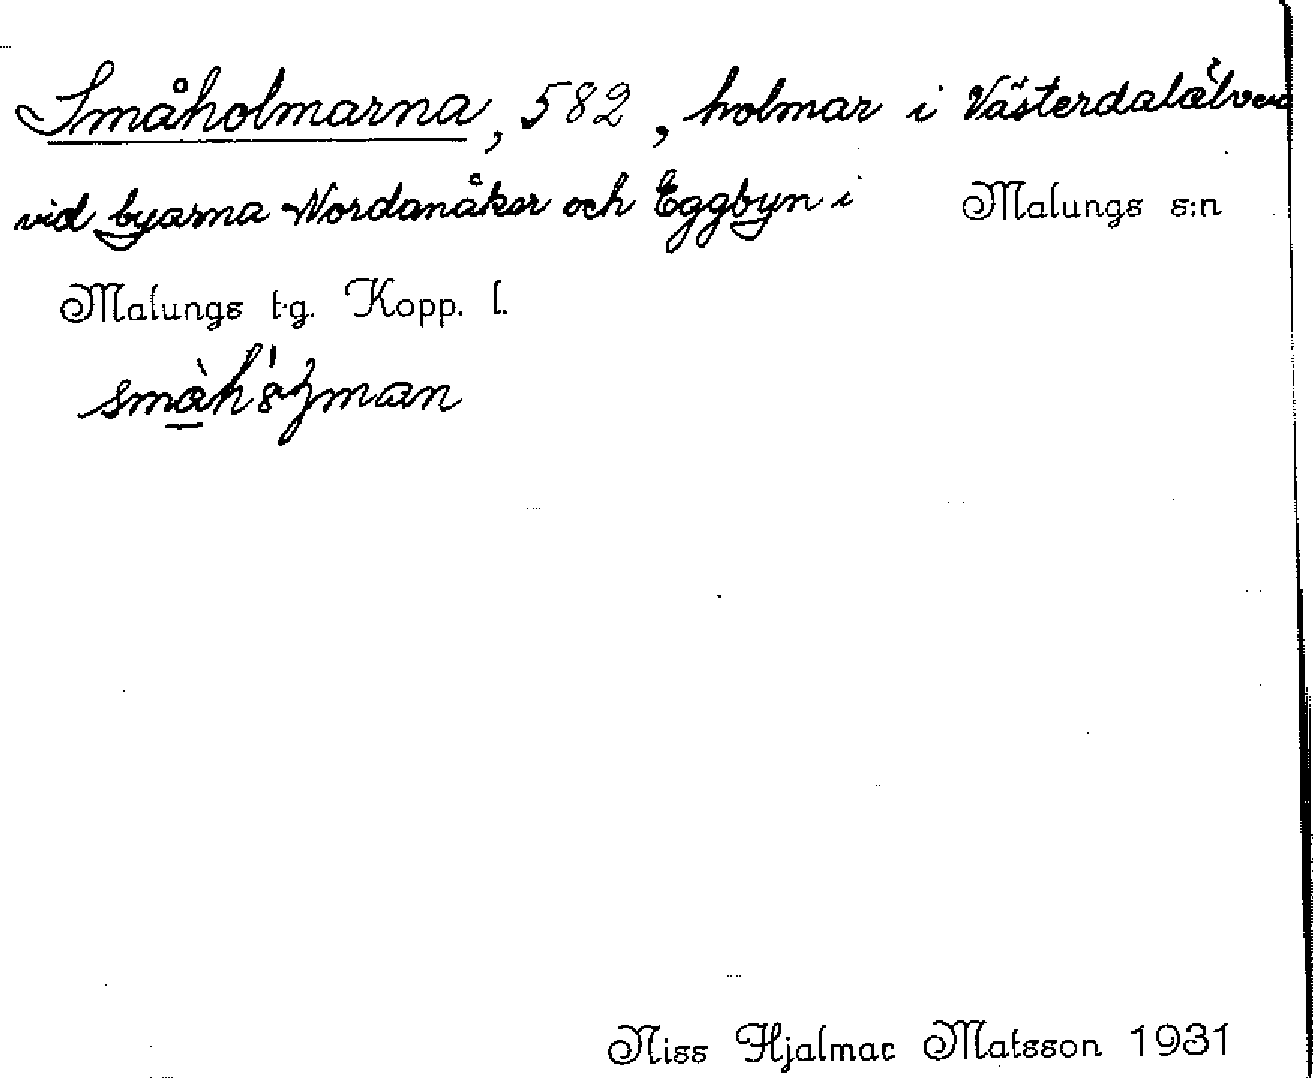 Småholmarna, 582, holmar i Västerdalälven
vid byarna Nordanåker och Eggbyn i Malungs s:n
Malungs t.g. Kopp. l.
Niss Hjalmar Matsson 1931